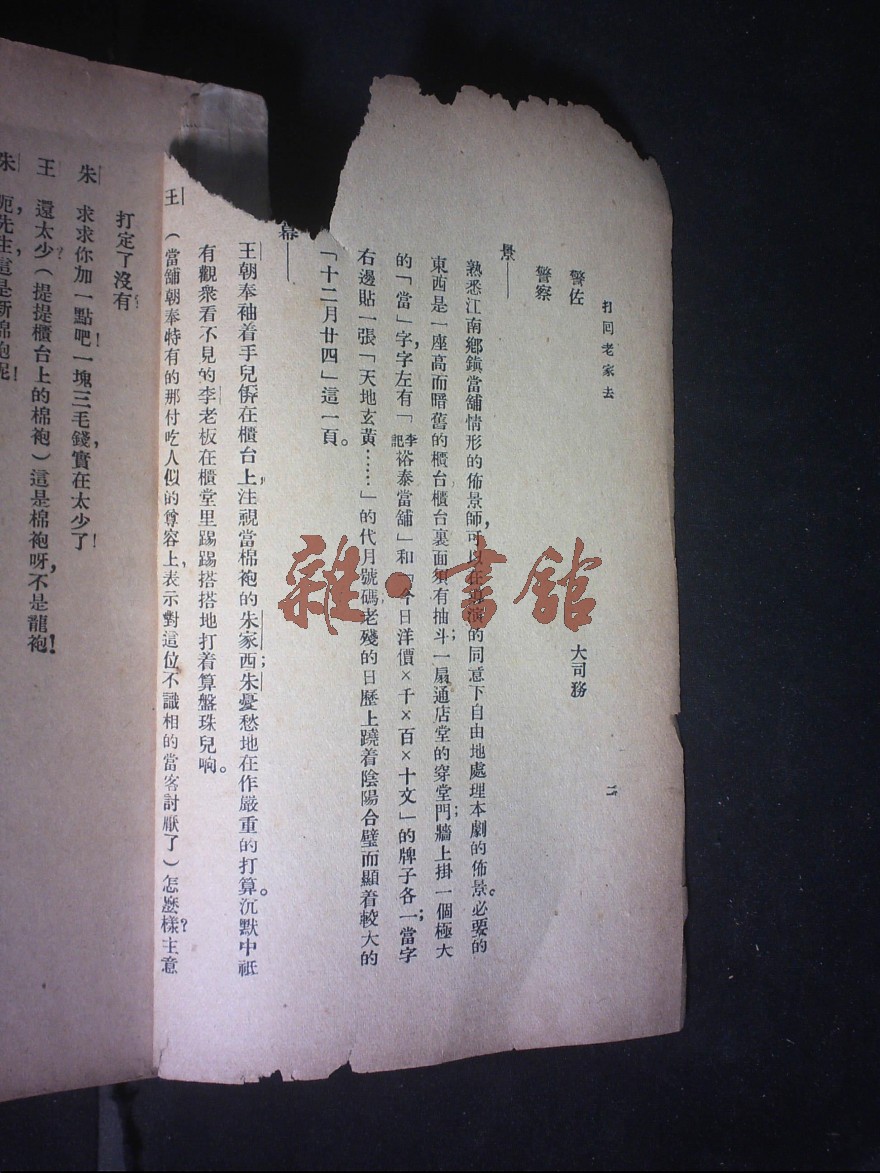 打回老家去
二
警佐
大司務
警察
景——
熟悉江南鄉鎮當舖情形的佈景師,可以在導演的同意下自由地處理本劇的佈景。必要的
東西是一座高而暗舊的櫃台櫃台裏面須有抽斗;一扇通店堂的穿堂門;牆上掛一個極大
的「當」字,字左有「李記裕泰當舖」和「今日洋價×千×百×十文」的牌子各一;當字
右邊貼一張「天地玄黃……」的代月號碼老殘的日歷上蹺着陰陽合璧而顯着較大的
「十二月廿四」這一頁。
幕——
王朝奉袖着手兒
在櫃台上,注視當棉袍的朱家西;朱憂愁地在作嚴重的打算。沉默中祇
有觀衆看不見的李老板在櫃堂里踢踢搭搭地打着算盤珠兒响。
王 (當舖朝奉特有的那付吃人似的尊容上,表示對這位不識相的當客討厭了)怎麼樣?主意
打定了沒有?
朱 求求你加一點吧!一塊三毛錢,實在太少了!
王 還太少?(提提櫃台上的棉袍)這是棉袍呀,不是龍袍!
朱
先生,這是新棉袍呢!
雜·書館